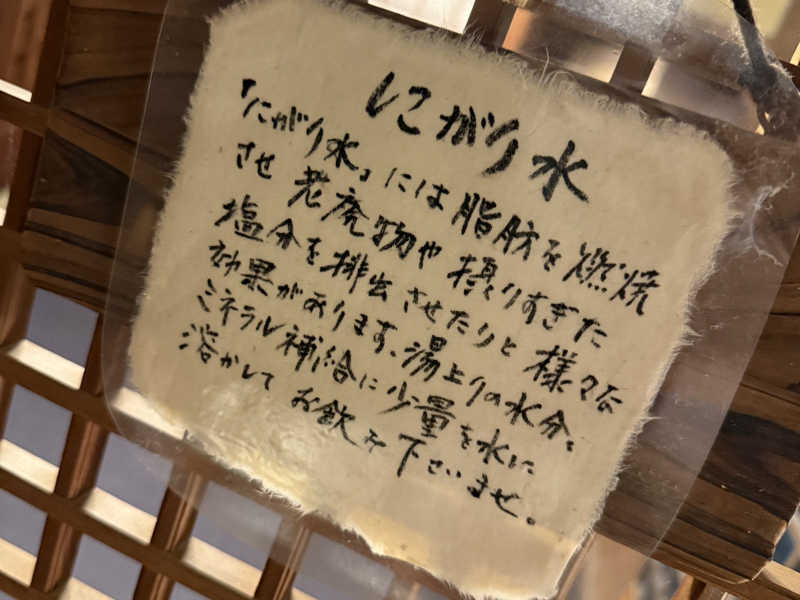 にがり水
「にがり水」には脂肪を燃焼
させ 老廃物や 摂りすぎた
塩分を排出させたりと 様々な
効果があります。湯上りの水分、
ミネラル補給に少量を水に
溶かして お飲み下さいませ。